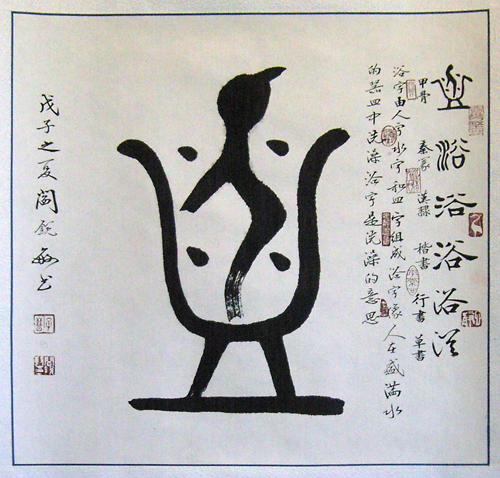 浴浴浴浴浴
甲骨 秦篆 漢隸 楷書 行書 草書
浴字由人字水字和皿字組成浴字象人在盛滿水
的器皿中洗澡浴字是洗澡的意思
戊子之夏閻銳敏书